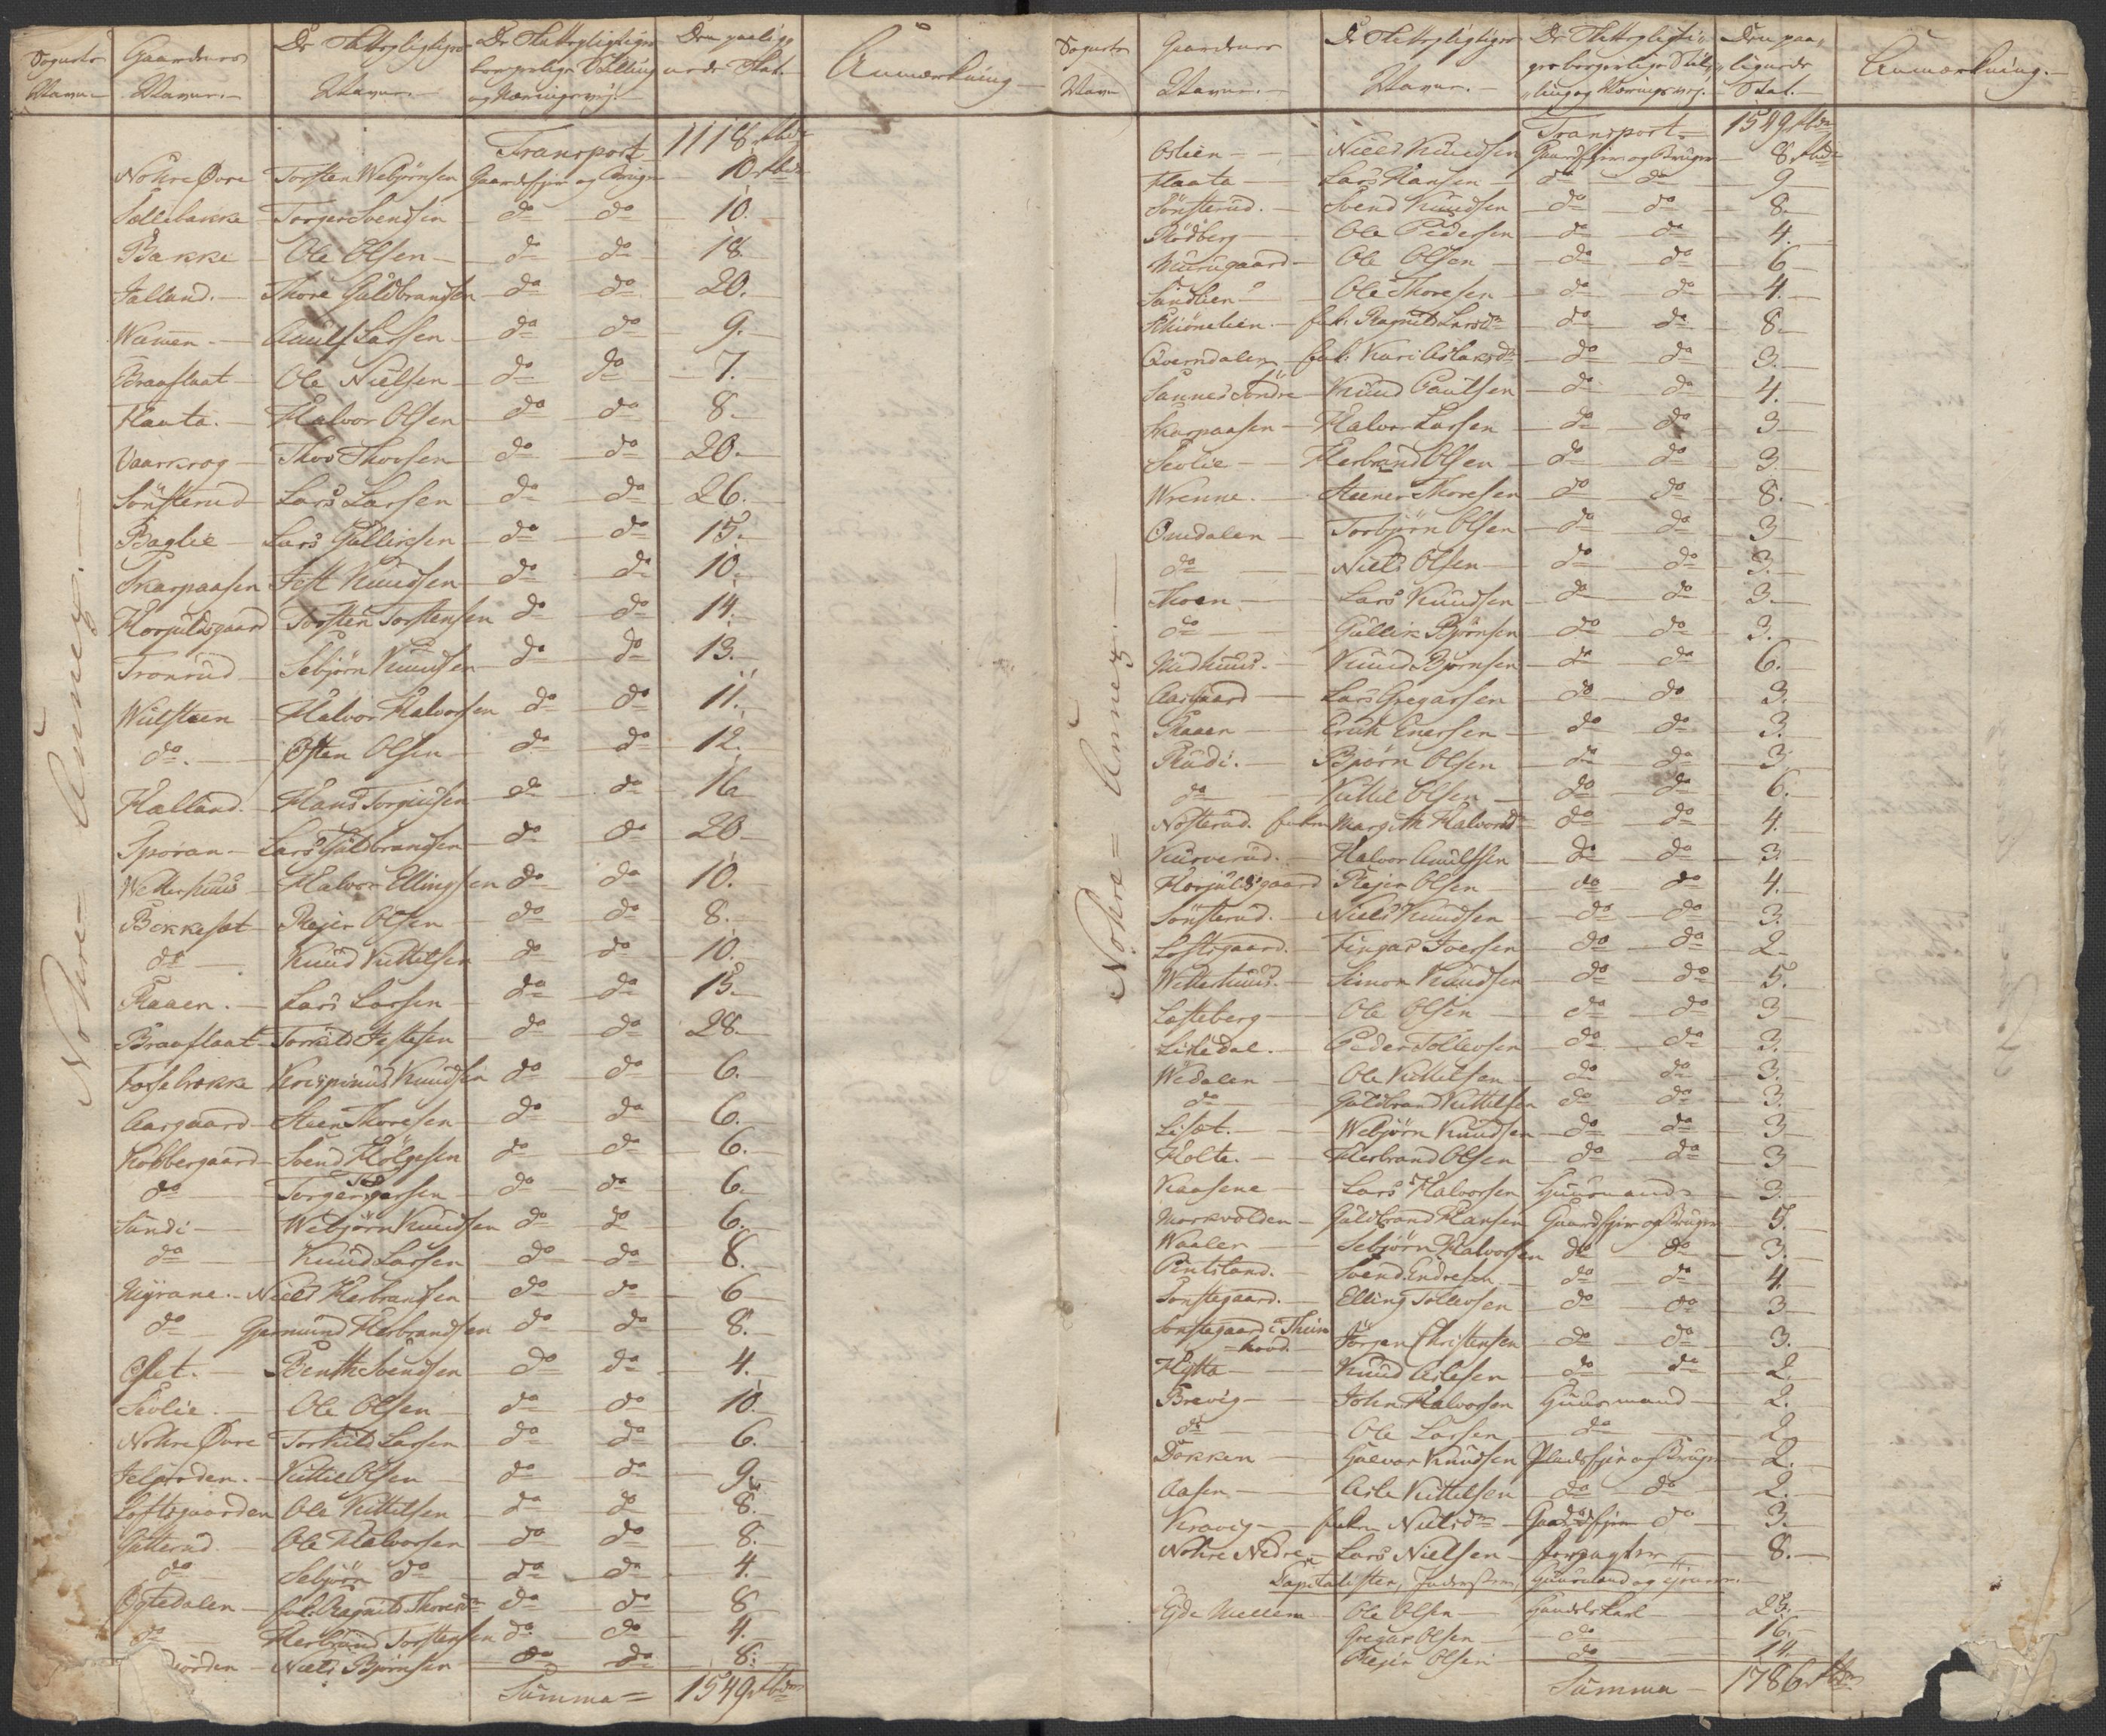 Sognets Navn | Gaardenes Navne. | De Skattepligtiges Navne. | De Skattepligtiges borgerlige Stilling og Næringsvej. | Den paalignede Skat. | Anmærkning
Nohre= Annex.
Transport | 1118 rbd
Nohre Øvre | Torsten Webjørnsen | Gaardsejer og Bruger | 10 rbd
Sællebakke | Torger Svendsen | do do | 10.
Bakke | Ole Olsen | do do | 18.
Jalland. | Thore Guldbrandsen | do do | 20.
Wamen. | Anulf Larsen | do do | 9.
Braaflaat | Ole Nielsen | do do | 7.
Flaata. | Halvor Olsen | do do | 8.
Vaarkrog | Thov Thovsen | do do | 20.
Sønsterud | Lars Larsen | do do | 26.
Baglie | Lars Gulliksen | do do | 15.
Skarpaasen | Jest Knudsen | do do | 10.
Horjuldsgaard | Torsten Torstensen | do do | 14.
Tronrud | Sebjørn Knudsen | do do | 13.
Wulsteen | Halvor Halvorsen | do do | 11.
do. | Østen Olsen | do do | 12.
Halland. | Hans Torgiusen | do do | 16
Sporan | Lars Guldbrandsen | do do | 20
Wetterhuus | Halvor Ellingsen | do do | 10.
Bekkesæt | Rejer Olsen | do do | 8.
do | Knud Kittelsen | do do | 10.
Raaen. | Lars Larsen | do do | 15.
Braaflaat | Torkild Jestesen | do do | 28.
Fossebrekke | Krispinus Knudsen | do do | 6.
Aasgaard | Steen Thoresen | do do | 6.
Kobbergaard | Svend Helgesen | do do | 6.
do | Torger Torgersen | do do | 6.
Sundi | Webjørn Knudsen | do do | 6.
do | Knud Larsen | do do | 8.
Myrane. | Niels Herbrandsen | do do | 6
do | Gjermund Herbrandsen | do do | 8.
Oset. | Benth Svendsen | do do | 4.
Seolie. | Ole Olsen | do do | 10.
Nohre Øvre | Torkild Larsen | do do | 6.
Jeljorden. | Kittil Olsen | do do | 9.
Loftsgaarden | Ole Kittelsen | do do | 8.
Gutterud | Ole Halvorsen | do do | 8.
do | Sebjørn do | do do | 4.
Ygtedalen | Enk: Ragnild Thoresdtr | do do | 8
do | Herbrand Torstensen | do do | 4.
jorden | Niels Bjørnsen | do do | 8.
Summa = | 1549 rbd
Sognets Navn | Gaardenes Navne. | De Skattepligtiges Navne. | De Skattepligtiges borgerlige Stilling og Næringsvej. | Den paalignede Skat. | Anmærkning.
Nohre= Annex.
Transport | 1549 rbd
Oslien | Niels Knudsen | Gaardsejer og Bruger | 8 rbd
Flaata | Lars Hansen | do do | 9
Sønsterud. | Svend Knudsen | do do | 8.
Rødberg | Ole Pedersen | do do | 4.
Muurugaard | Ole Olsen | do do | 6
Sandlien | Ole Thoresen | do do | 4.
Skiønelien. | Enk: Ragnild Larsdtr | do do | 8.
Qverndalen | Enk: Kari Aslaksdtr | do do | 3.
Sannes Søndre | Knud Paulsen | do do | 4.
Skarpaasen | Halvor Larsen | do do | 3
Seolie | Herbrand Olsen | do do | 3.
Wrenne. | Steener Thoresen | do do | 8.
Omdalen | Torbjørn Olsen | do do | 3
do | Niels Olsen | do do | 3.
Thoen | Lars Knudsen | do do | 3.
do | Gullik Bjørnsen | do do | 3.
Midhuus. | Knud Bjørnsen | do do | 6.
Aasgaard | Lars Gregarsen | do do | 3.
Raaen | Erich Enersen | do do | 3.
Rudi. | Bjørn Olsen | do do | 3.
do | Kittil Olsen | do do | 6.
Nøsterud. | Enken Margith Halvorsdtr | do do | 4.
Kurverud. | Halvor Anulfsen | do do | 3.
Horjuldsgaard | Rejer Olsen | do do | 4.
Sønsterud. | Niels Knudsen | do do | 3.
Loftsgaard. | Fingar Iversen | do do | 2
Wetterhuus. | Simon Knudsen | do do | 5.
Læsteberg | Ole Olsen | do do | 3
Lisledal. | Peder Tollevsen | do do | 3.
Wedalen | Ole Kittilsen | do do | 3.
do | Guldbrand Kittilsen | do do | 3.
Lisæt. | Webjørn Knudsen | do do | 3
Holte. | Herbrand Olsen | do do | 3
Kaasene | Lars Halvorsen | Huusmand | 3.
Morkvolden | Guldbrand Hansen | Gaardsejer og Bruger | 5.
Waaler | Sebjørn Halvorsen | do do | 3.
Pentsland. | Svend Endresen | do do | 4
Tonstegaard. | Elling Tollevsen | do do | 3
Tonstegaard i Thuinhovd. | Jørgen Christensen | do do | 3.
Hytta | Knud Aslesen | do do | 2.
Brevig | John Halvorsen | Huusmand | 2.
do | Ole Larsen | do | 2
Dokken | Halvor Knudsen | Pladsejer og Bruger | 2.
Aasen | Asle Kittelsen | do do | 2.
Kravig | Enken Nielsdtr | Gaardsejer do | 3.
Nohre Nedre | Lars Nielsen | forpagter | 8.
Capitalister, Inderster, Huusmænd og tjenere.
Ejde Mellem | Ole Olsen | Handelskarl | 28.
Gregar Olsen | do | 16.
Rejer Olsen | do | 14.
Summa | 1786 rbd